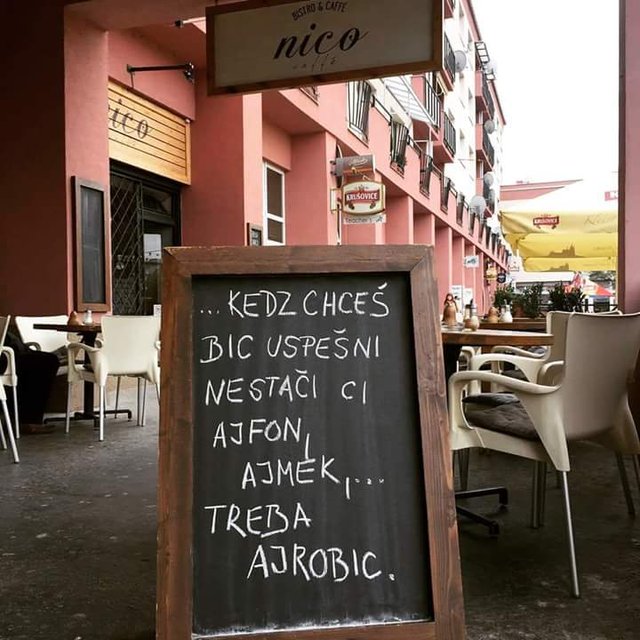 BISTRO & CAFFÉ
nico
caffé
nico
KRUŠOVICE
KRUŠOVICE
...KEDZ CHCEŠ
BIC USPEŠNI
NESTAČI CI
AJFON,
AJMEK,...
TREBA
AJROBIC.